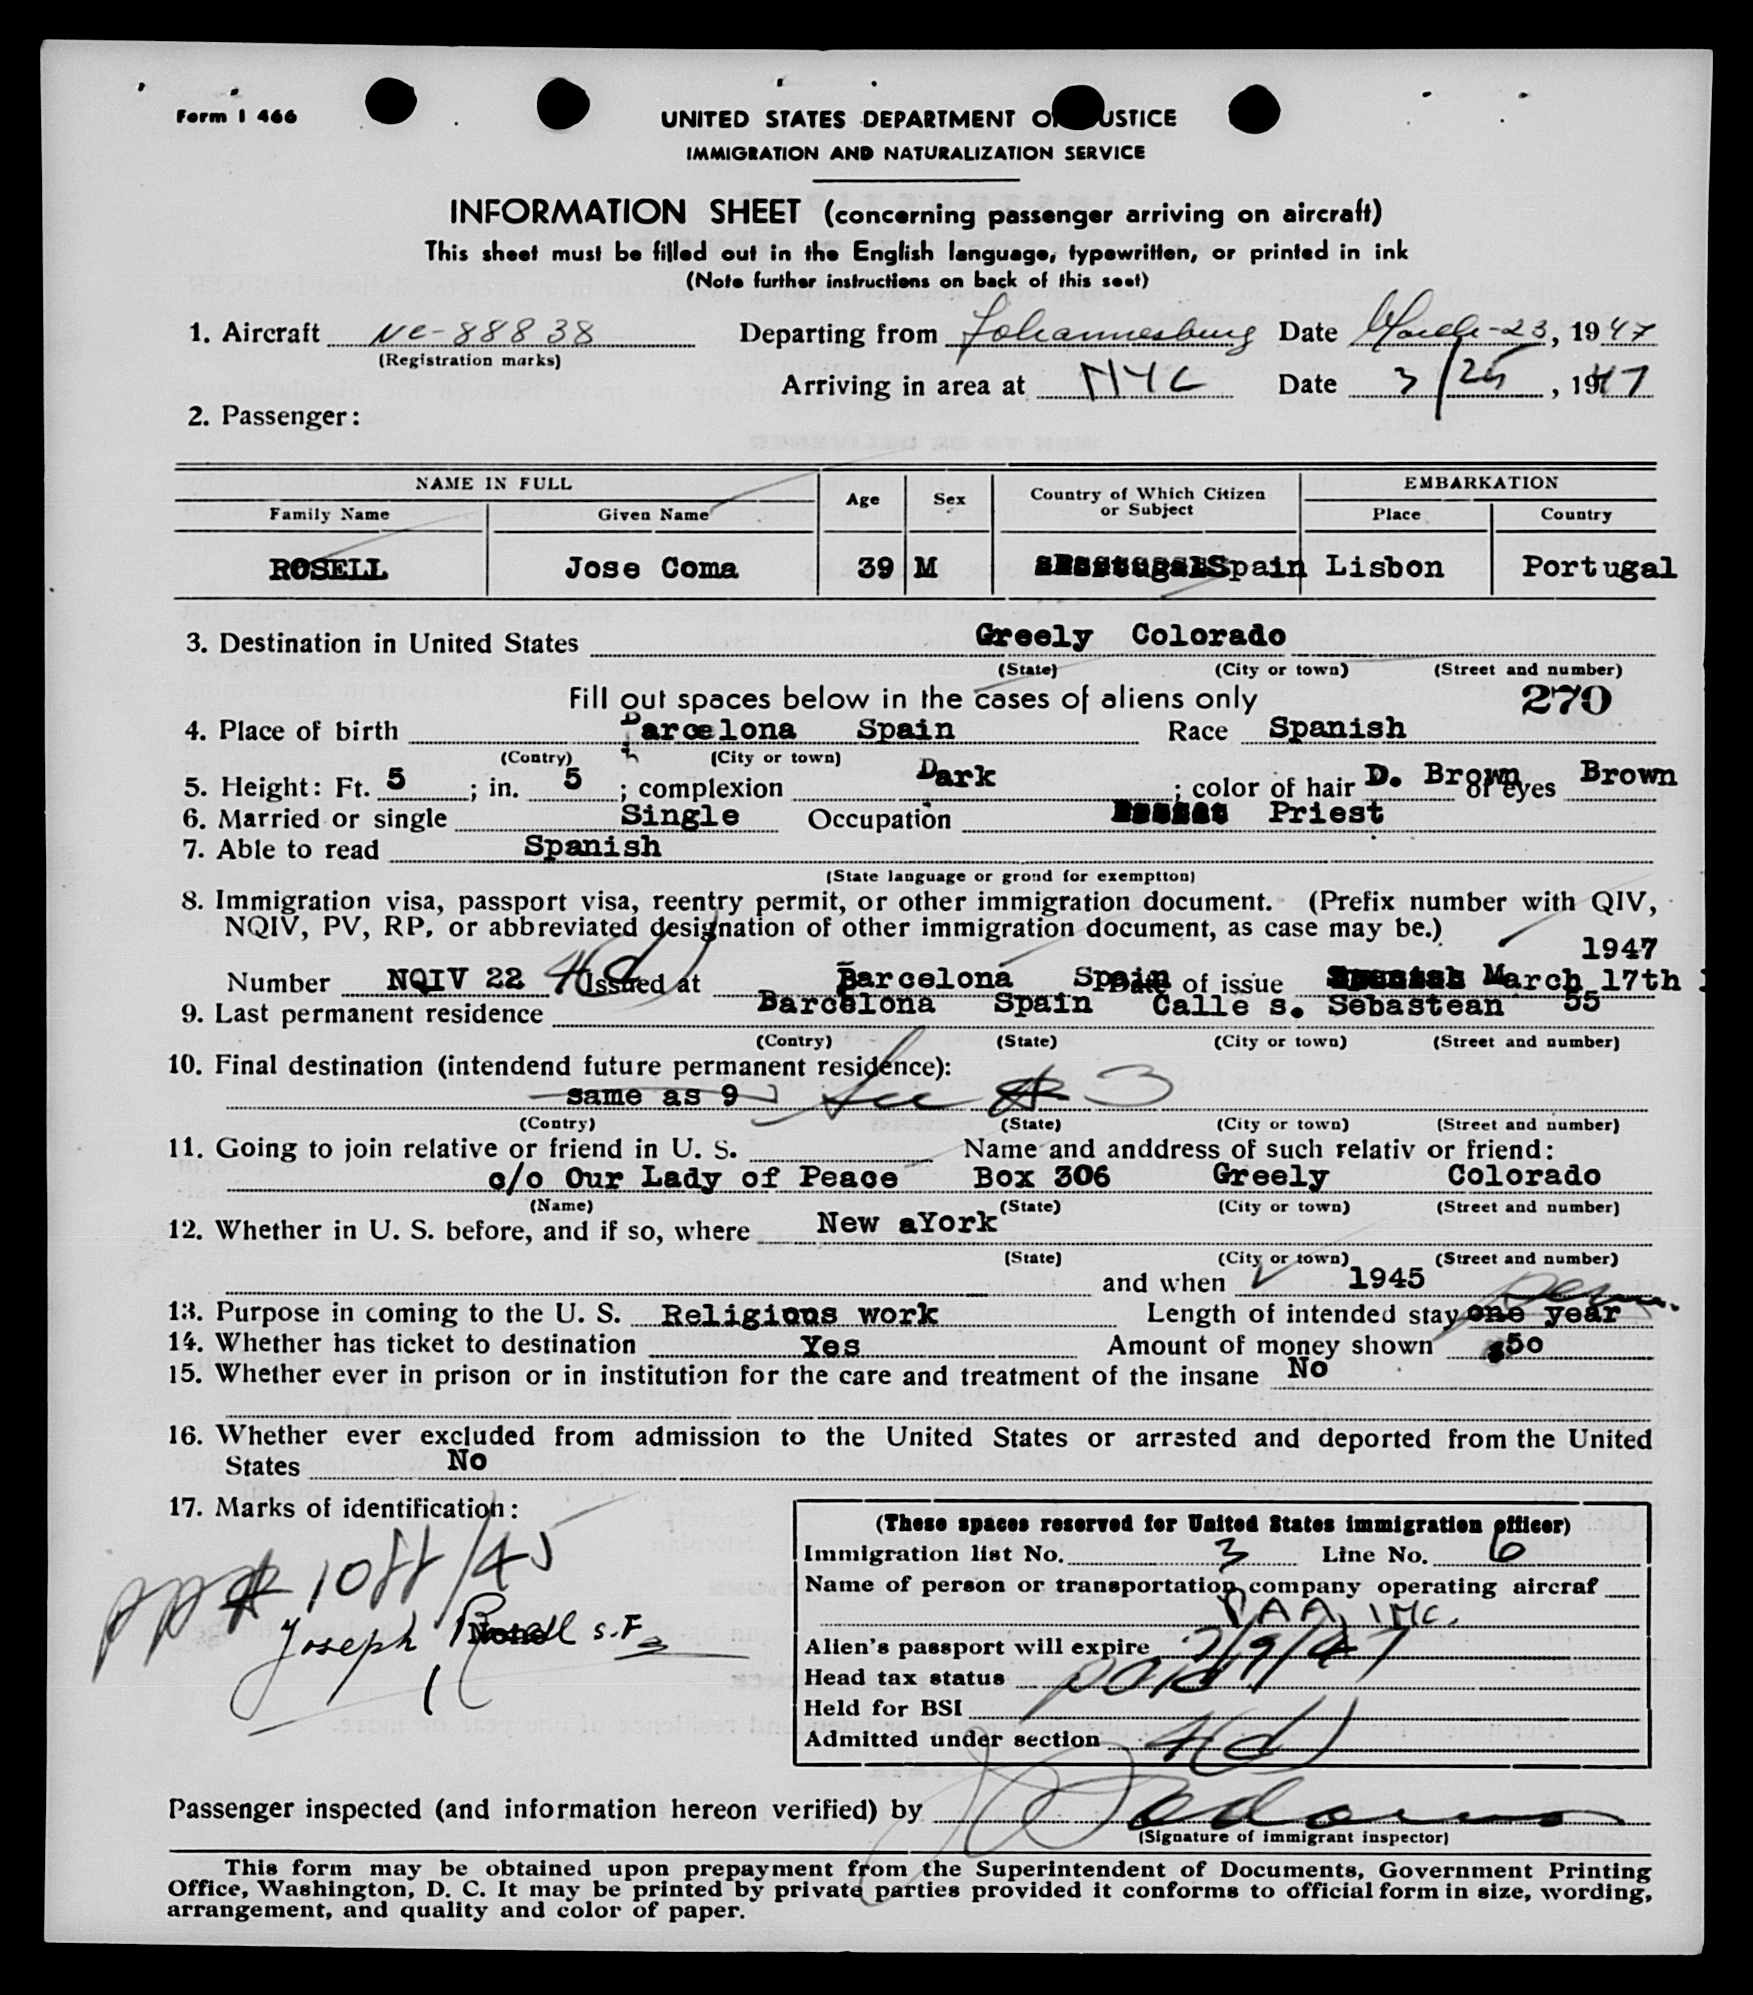 Form I 466
UNITED STATES DEPARTMENT O USTICE
IMMIGRATION AND NATURALIZATION SERVICE
INFORMATION SHEET (concerning passenger arriving on aircraft)
This sheet must be filled out in the English language, typewritten, or printed in ink
(Note further instructions on back of this seet)
1. Aircraft NC-88838 Departing from Johannesburg Date March-23, 1947
(Registration marks)
Arriving in area at NYC Date 3/25, 1947
2. Passenger:
NAME IN FULL Age Sex Country of Which Citizen or Subject EMBARKATION
Family Name Given Name Place Country
ROSELL Jose Coma 39 M Spain Lisbon Portugal
3. Destination in United States Greely Colorado
(State) (City or town) (Street and number)
Fill out spaces below in the cases of aliens only 270
4. Place of birth Barcelona Spain Race Spanish
(Contry) (City or town)
5. Height: Ft. 5; in. 5; complexion Dark; color of hair D. Brown of eyes Brown
6. Married or single Single Occupation Priest
7. Able to read Spanish
(State language or grond for exemption)
8. Immigration visa, passport visa, reentry permit, or other immigration document. (Prefix number with QIV,
NQIV, PV, RP, or abbreviated designation of other immigration document, as case may be.)
1947
Number NQIV 22 4(d) Issued at Barcelona Spain Date of issue March 17th
9. Last permanent residence Barcelona Spain Calle s. Sebastean 55
(Contry) (State) (City or town) (Street and number)
10. Final destination (intendend future permanent residence):
same as 9 See # 3
(Contry) (State) (City or town) (Street and number)
11. Going to join relative or friend in U. S. Name and anddress of such relativ or friend:
c/o Our Lady of Peace Box 306 Greely Colorado
(Name) (State) (City or town) (Street and number)
12. Whether in U. S. before, and if so, where New aYork
(State) (City or town) (Street and number)
and when 1945
13. Purpose in coming to the U. S. Religious work Length of intended stay one year
14. Whether has ticket to destination Yes Amount of money shown $50
15. Whether ever in prison or in institution for the care and treatment of the insane No
16. Whether ever excluded from admission to the United States or arrested and deported from the United
States No
17. Marks of identification:
None
Joseph Rosell S.F.
(These spaces reserved for United States immigration officer)
Immigration list No. 3 Line No. 6
Name of person or transportation company operating aircraf
PAA, INC.
Alien's passport will expire 7/9/47
Head tax status paid
Held for BSI
Admitted under section 4(d)
Passenger inspected (and information hereon verified) by
(Signature of immigrant inspector)
This form may be obtained upon prepayment from the Superintendent of Documents, Government Printing
Office, Washington, D. C. It may be printed by private parties provided it conforms to official form in size, wording,
arrangement, and quality and color of paper.